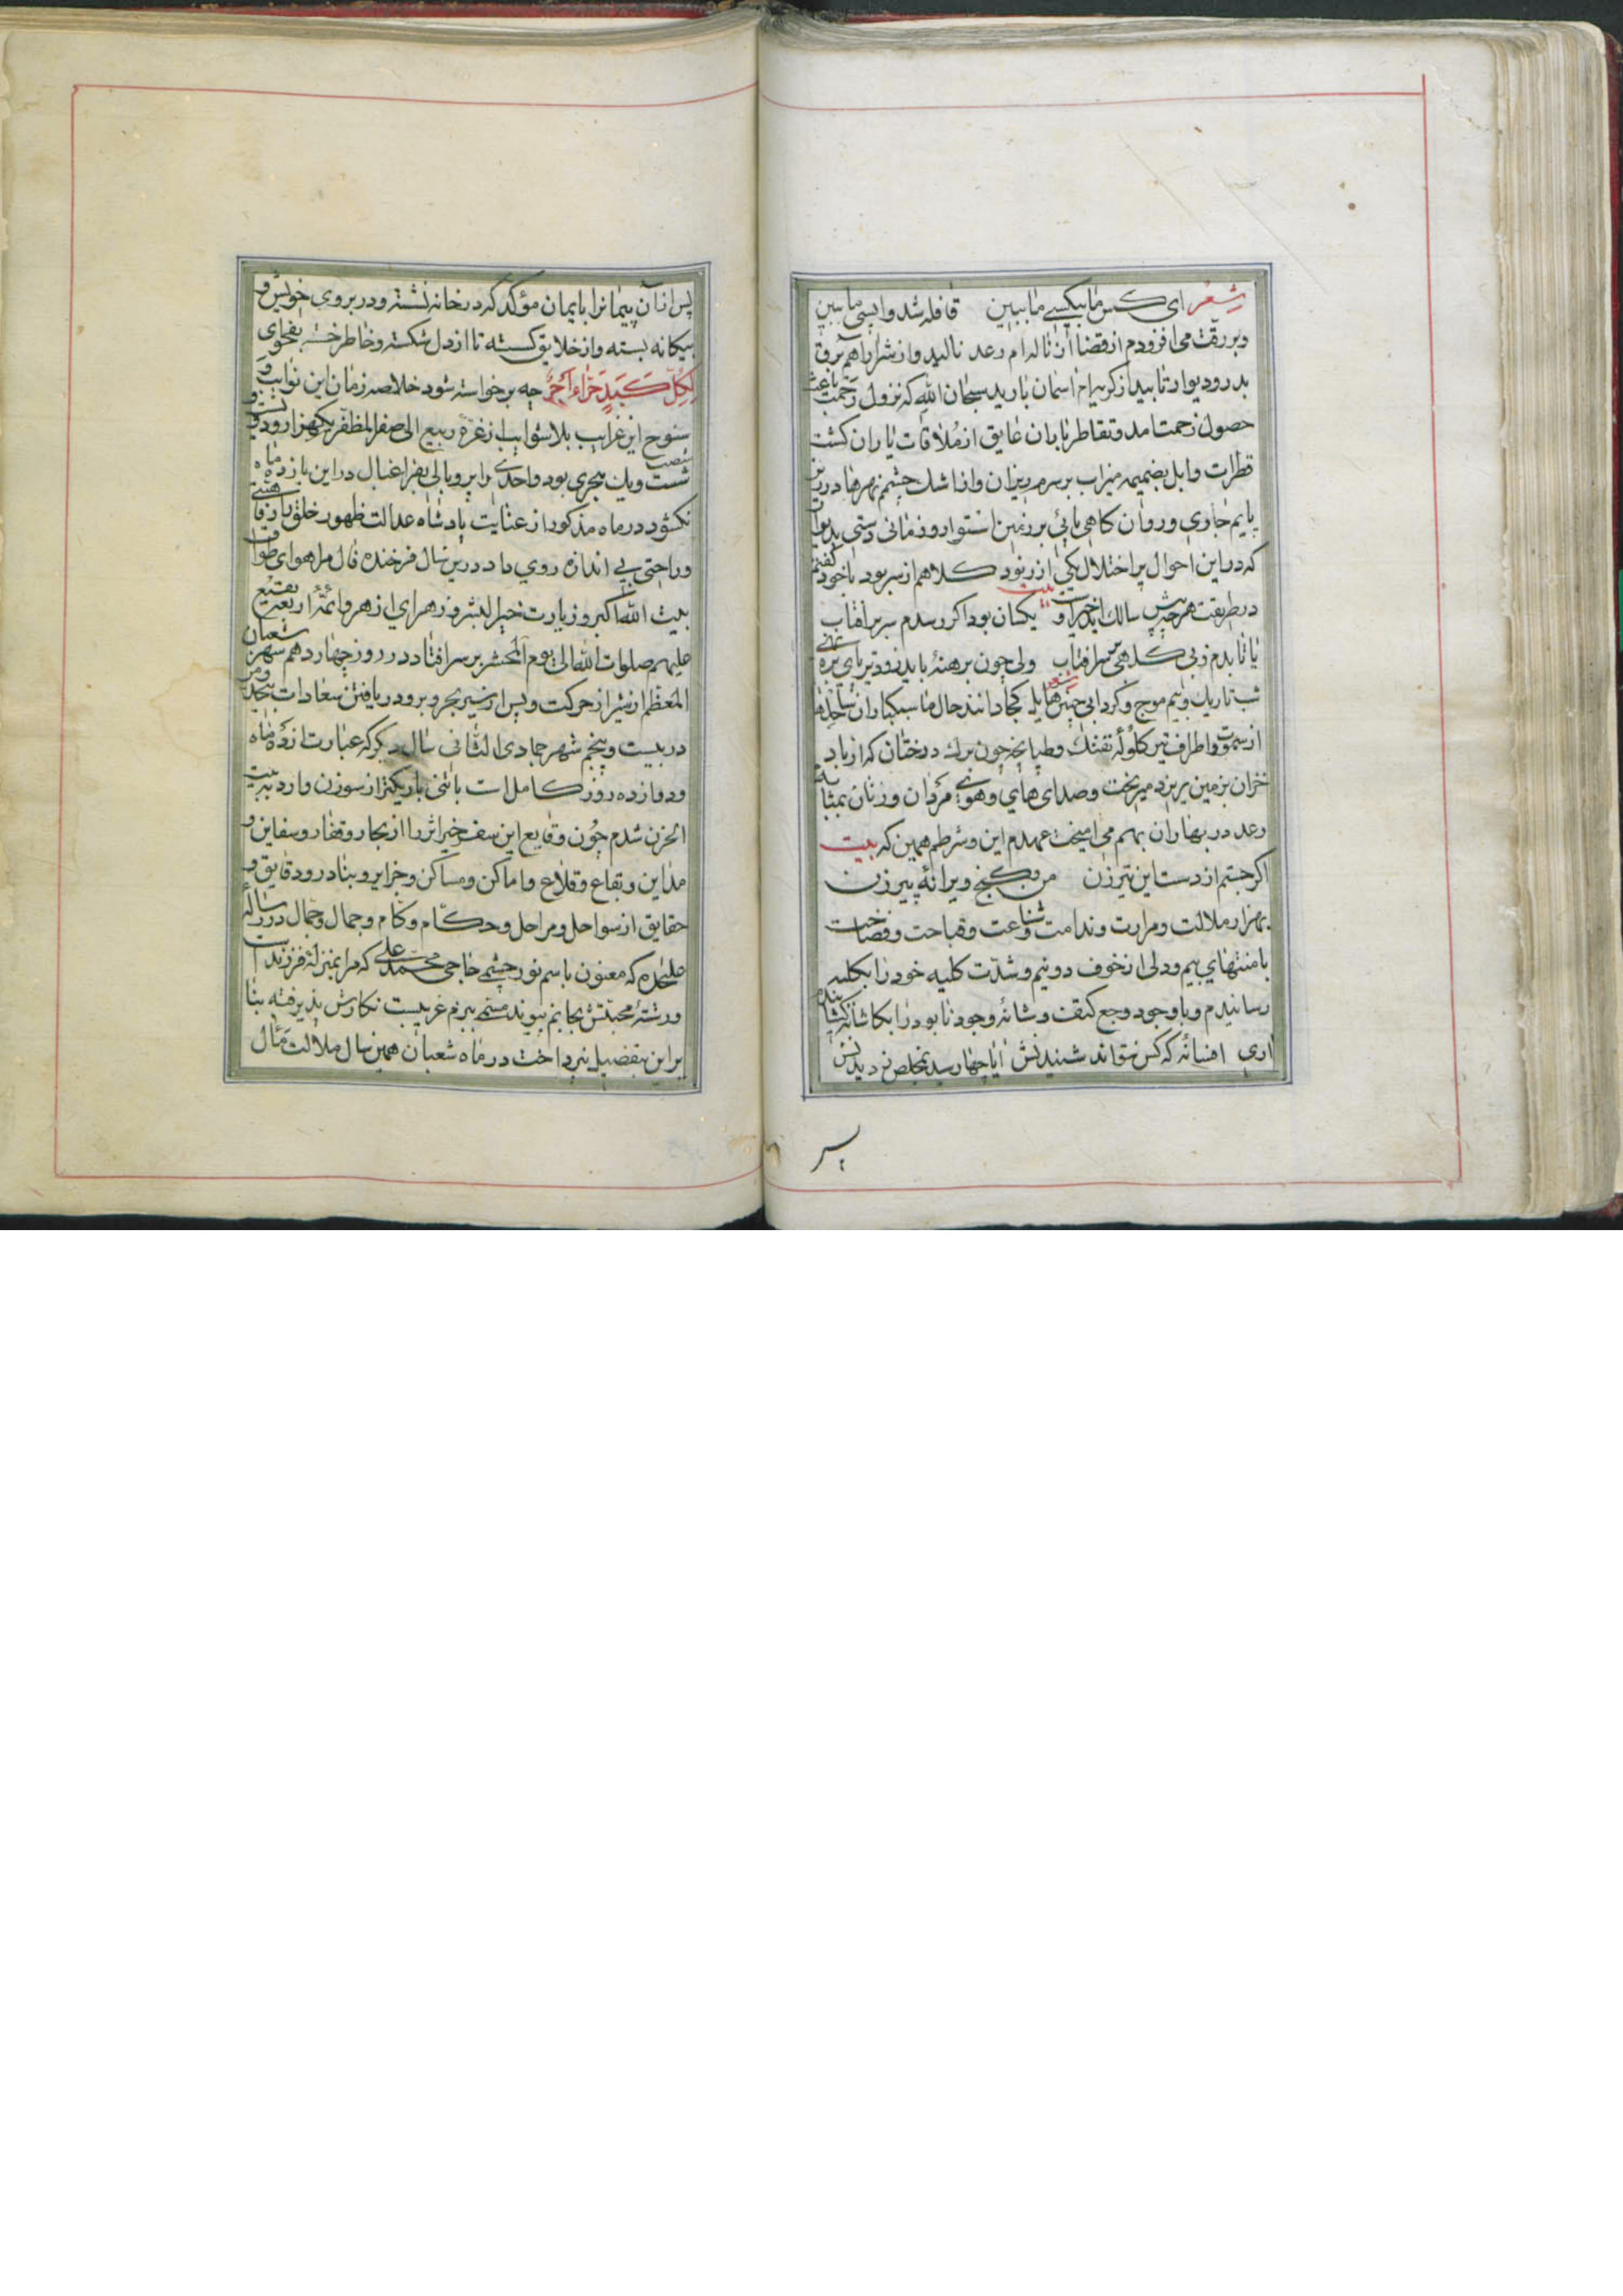 شعر ای کس ما بیکسی ما ببین قافله شد واپسی ما ببین
وبر رقت می افزودم از قضا از ناله ام رعد نالید و از شرار اهم برق
بدر و دیوار تابید از کریه ام اسمان بارید سبحان الله که نزول رحمت باعث
حصول زحمت امد و تقاطر باران عایق از ملاقات یاران کشت
قطرات وابل بضمیمه میزاب بر سرم ریزان و از اشک چشم نهرها در زیر
پایم جاری و روان کاهی پائی بر زمین استوار و زمانی دستی بدیوار
که در این احوال پر اختلال یکی از ربود کلاهم از سر بود با خود گفتم
در طریقت هر چه پیش سالک اید خیر اوست بیت یکسان بود اکر رسدم سر بر افتاب
یا تابدم ز بی کلهی سر افتاب ولی چون برهنه پای
شب تاریک و بیم موج و کردابی چنین هایل شعر کجا دانند حال ما سبکباران ساحلها
از سموت و اطراف تیر کلوله تفنک و طپانچه چون برک درختان که از باد
خزان بزمین بریزد میریخت و صدای های و هوی مردان و زنان بمثابه
رعد در بهاران بهم می امیخت عهدم این و شرطم همین که بیت
اکر جستم از دست این تیرزن من و کنج ویرانه پیرزن
بهزار ملالت و مرارت و ندامت و شناعت و قباحت و فضاحت
با منتهای بیم و دلی از خوف دو نیم و شدت کلیه خود را بکلبه
رسانیدم و با وجود وجع کتف و شانه وجود نابود را بکاشانه کشانیدم
اری افسانه که کس نتواند شنیدنش ایا چها رسد بمخلص ز دیدنش
پس
پس از ان پیمانرا بایمان مؤکد کرد در خانه نشسته و در بروی خویش و
بیکانه بسته و از خلایق کسسته تا از دل شکسته و خاطر خسته بفحوای
لکل کبد حراء اجر چه برخواسته شود خلاصه زمان این نوایب و
سنوح این غرایب بلا شوایب از غره ربیع الی صفر المظفر یکهزار و دویست و
شصت ویک هجری بود واحدی را پر و بالی بفراغبال در این یازده ماه
نکشود در ماه مذکور از عنایت پادشاه عدالت ظهور خلق را رفاهیتی
و راحتی بی اندازه روی داد در این سال فرخنده فال مرا هوای طواف
بیت الله اکبر و زیارت خیر البشر و زهرای ازهر و ائمه اربعه بقیع
علیهم صلوات الله الی یوم المحشر بر سر افتاد در روز چهاردهم شهر شعبان
المعظم از شیراز حرکت و پس از سیر بحر و بر و دریافتن سعادات بیحد و مر
در بیست و پنجم شهر جمادی الثانی سال دیکر که عبارت از ده ماه
و دوازده روز کامل است با تنی باریکتر از سوزن وارد بیت
الحزن شدم چون وقایع این سفر خیر اثر را از بحار و قفار و سفاین و
مداین و بقاع و قلاع و اماکن و مساکن و جزایر و بنادر و دقایق و
حقایق از سواحل و مراحل و حکام و کام و جمال و جمال در رساله
علیحده که معنون باسم نور چشم حاجی محمد علی که مرا بمنزله فرزند است
و رشته محبتش بجانم پیوند مستمی ببزم غریبست نکارش پذیرفته بنا
بر این بتفصیل نپرداخت در ماه شعبان همین سال ملالت مآل